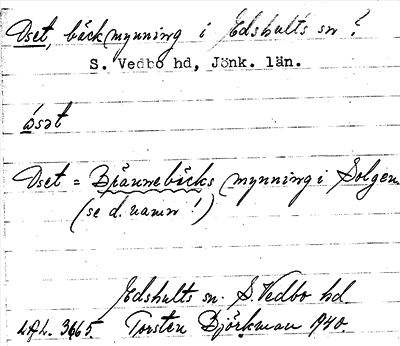 Oset, bäckmynning i Edshults sn?
S. Vedbo hd, Jönk. län.
ósət
Oset = Brånnebäcks mynning i Solgen.
(se d. namn!)
Edshults sn. S. Vedbo hd
LAL. 3665. Torsten Björkman 1940.